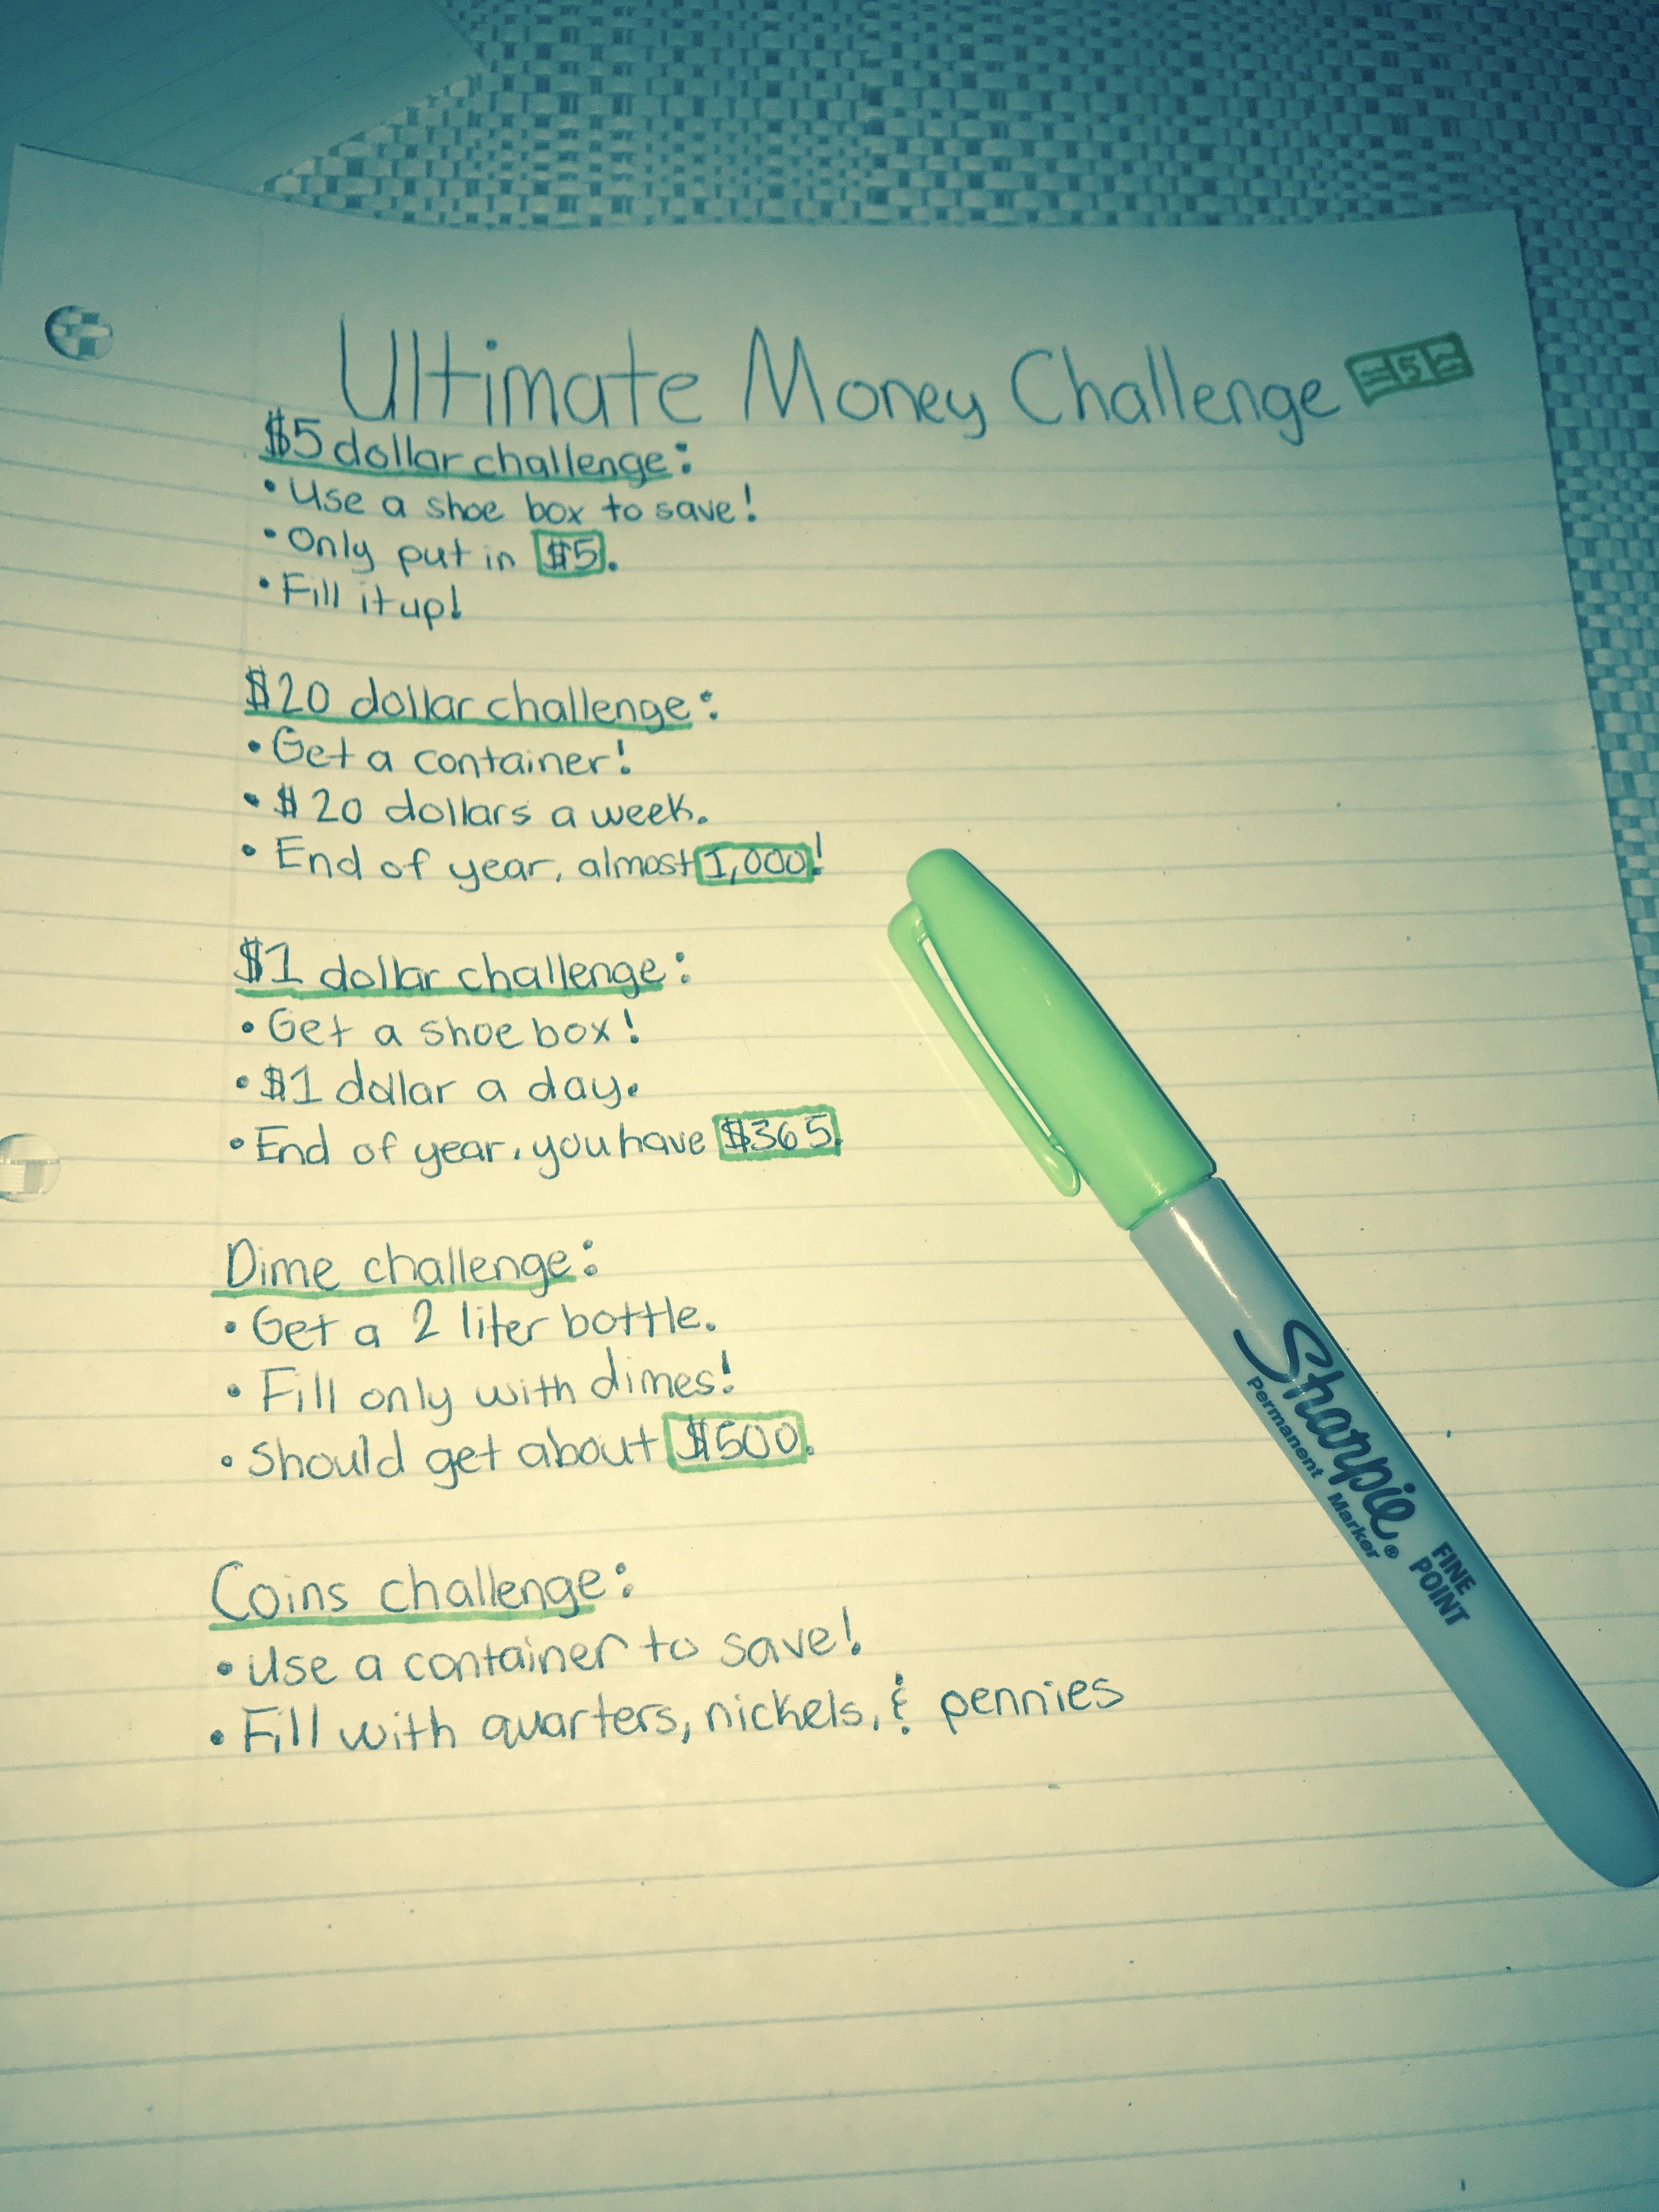 Ultimate Money Challenge
5
$5 dollar challenge:
• Use a shoe box to save!
• Only put in $5.
• Fill it up!
$20 dollar challenge:
• Get a container!
• $20 dollars a week.
• End of year, almost 1,000!
$1 dollar challenge:
• Get a shoe box!
• $1 dollar a day.
• End of year, you have $365.
Dime challenge:
• Get a 2 liter bottle.
• Fill only with dimes!
• Should get about $500.
Coins challenge:
• Use a container to save!
• Fill with quarters, nickels, & pennies
Sharpie®
Permanent Marker
FINE
POINT